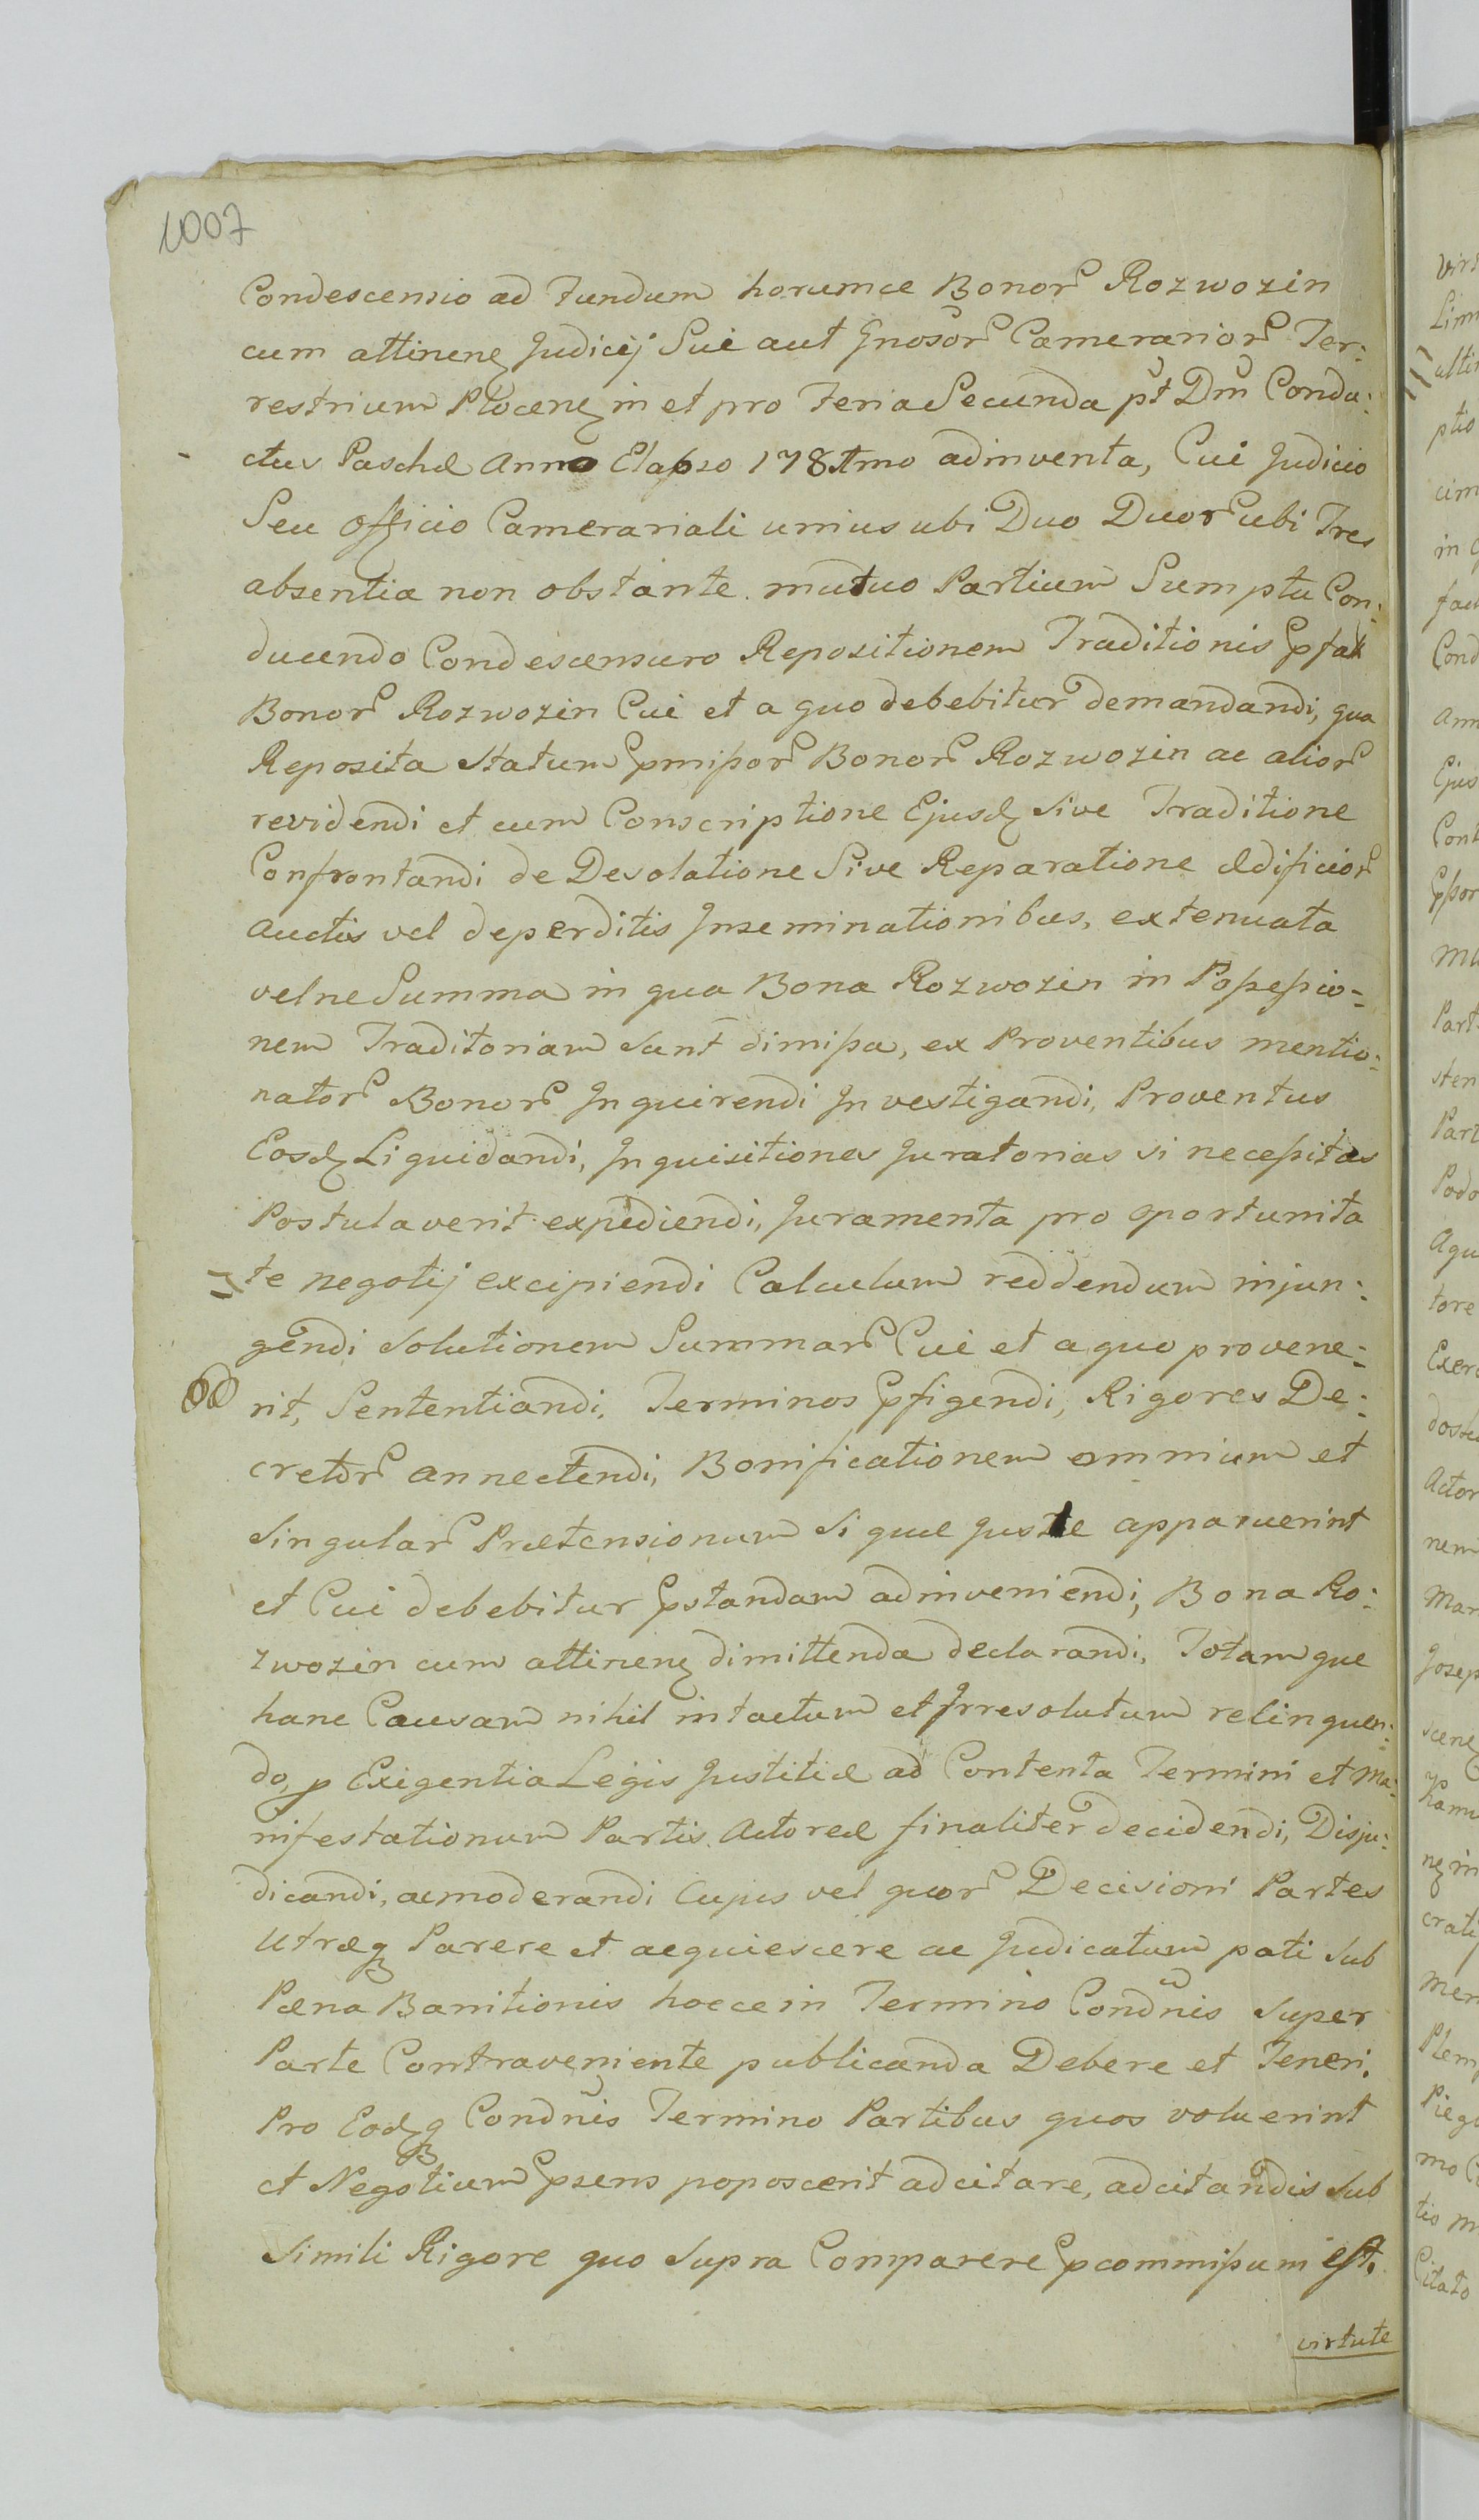 1007
Condescensio ad Fundum horumce Bonor Rozwozin
cum attinen Judicij Sui aut Gnosor Camerarior Ter:
restrium Plocen in et pro Feria Secunda pt Dm Condu:
ctus Paschæ Anno Elapso 1781mo adinventa, Cui Judicio
Seu Officio Camerariali unius ubi Duo Duor ubi Tres
absentia non obstante mutuo Partium Sumptu Con:
ducendo Condescensuro Repositionem Traditionis pfat
Bonor Rozwozin Cui et a quo debebitur demandandi, qua
Reposita Statum pmißor Bonor Rozwozin ac alior
revidendi et cum Conscriptione Ejusd Sive Traditione
Confrontandi de Desolatione Sive Reparatione Ædificior
auctis vel deperditis Inseminationibus, extenuata
velne Summa in qua Bona Rozwozin in Poßeßio=
nem Traditoriam Sunt dimißa, ex Proventibus mentio:
nator Bonor Inquirendi Investigandi, Proventus
Eosd Liquidandi, Inquisitiones Juratorias si neceßitas
Postulaverit expediendi, Juramenta pro oportunita
te negotij excipiendi Calculum reddendum injun:
gendi Solutionem Summar Cui et a quo provene:
rit, Sententiandi, Terminos pfigendi, Rigores De:
cretor annectendi, Bonificationem omnium et
Singular Prætensionum Si quæ juste apparuerint
et Cui debebitur pstandam adinveniendi, Bona Ro:
zwozin cum attinen dimittenda declarandi, Totamque
hanc Causam nihil intactum et Irresolutum relinquen:
do, p Exigentia Legis Justitiæ ad Contenta Termini et Ma:
nifestationum Partis Actoreæ finaliter decidendi, Disju:
dicandi, ac moderandi Cujus vel quor Decisioni Partes
Utræq Parere et acquiescere ac Judicatum pati Sub
Pæna Banitionis hocce in Termino Condnis Super
Parte Contraveniente publicanda Debere et Teneri.
Pro Eodq Condnis Termino Partibus quos voluerint
et Negotium psens poposcerit adcitare, adcitandis Sub
Simili Rigore quo Supra Comparere pcommißum est.
virtute